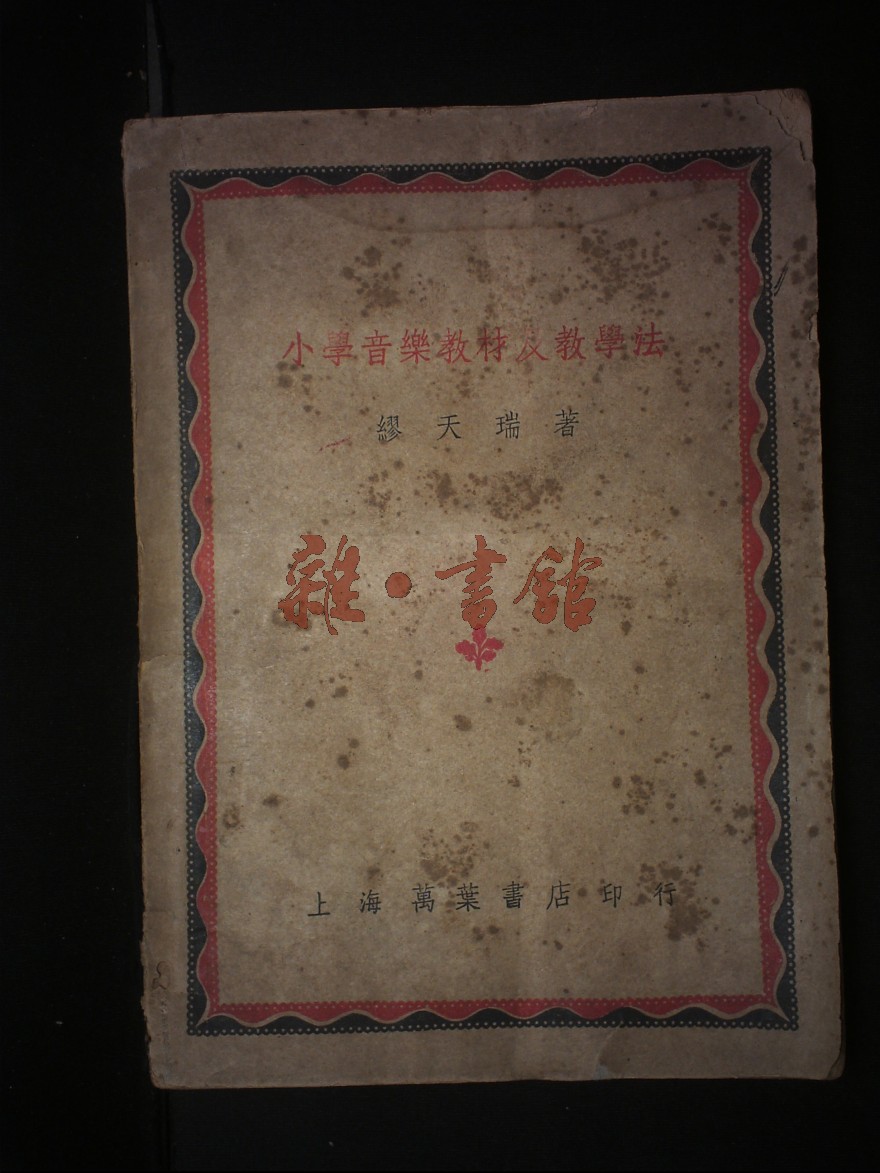 小學音樂教材及教學法
繆天瑞著
雜·書館
上海萬葉書店印行